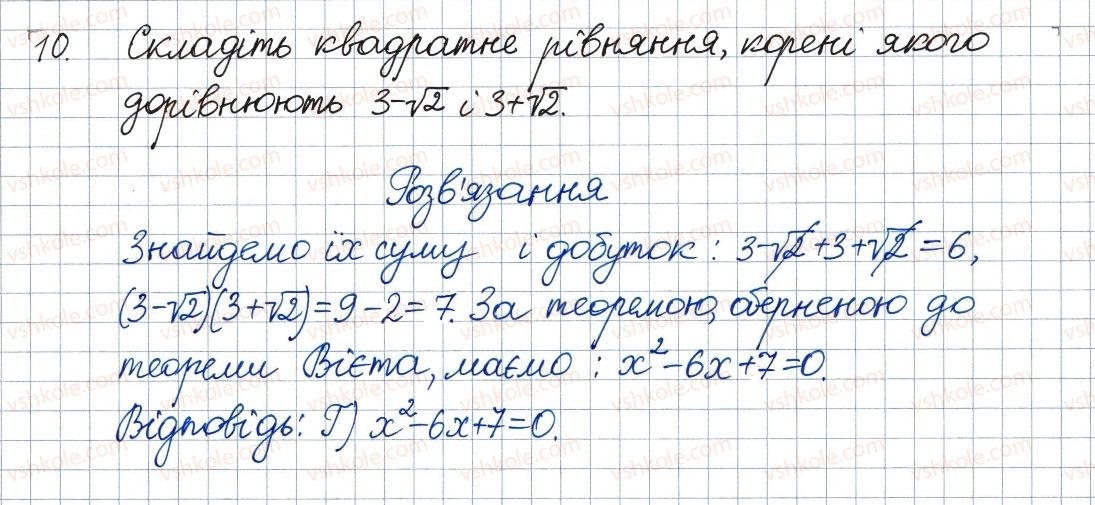 10. Складіть квадратне рівняння, корені якого
дорівнюють 3-√2 і 3+√2.
Розв'язання
Знайдемо їх суму і добуток: 3-√2+3+√2=6,
(3-√2)(3+√2)=9-2=7. За теоремою, оберненою до
теореми Вієта, маємо: x²-6x+7=0.
Відповідь: Г) x²-6x+7=0.